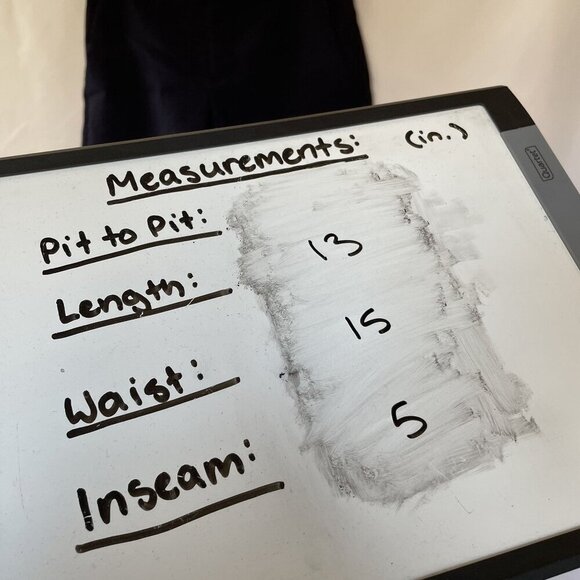 Measurements: (in.)
Quartet
Pit to Pit:
Length: 13
Waist: 15
Inseam: 5